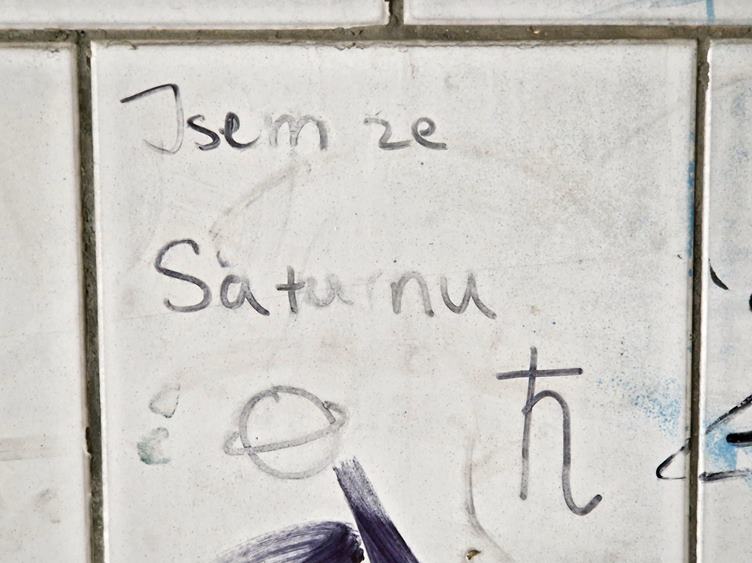 Jsem ze
Saturnu
♄